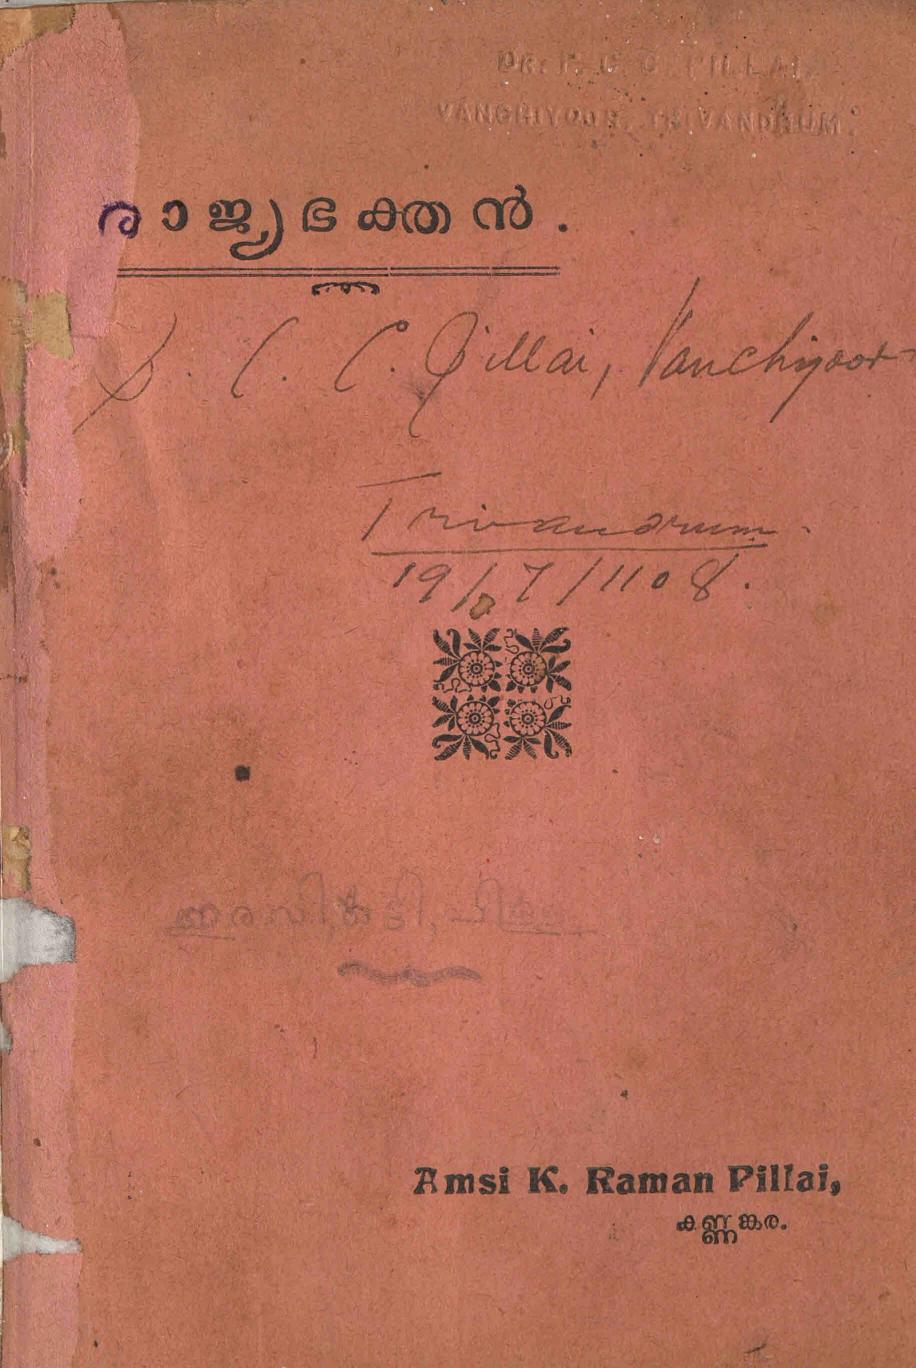 VANCHIYOOR, TRIVANDRUM.
രാജ്യഭക്തൻ.
C. C. Pillai, Vanchiyoor
Trivandrum.
19/7/1108.
ഇരവിക്കുട്ടി, പിള്ള
Amsi K. Raman Pillai,
കണ്ണങ്കര.